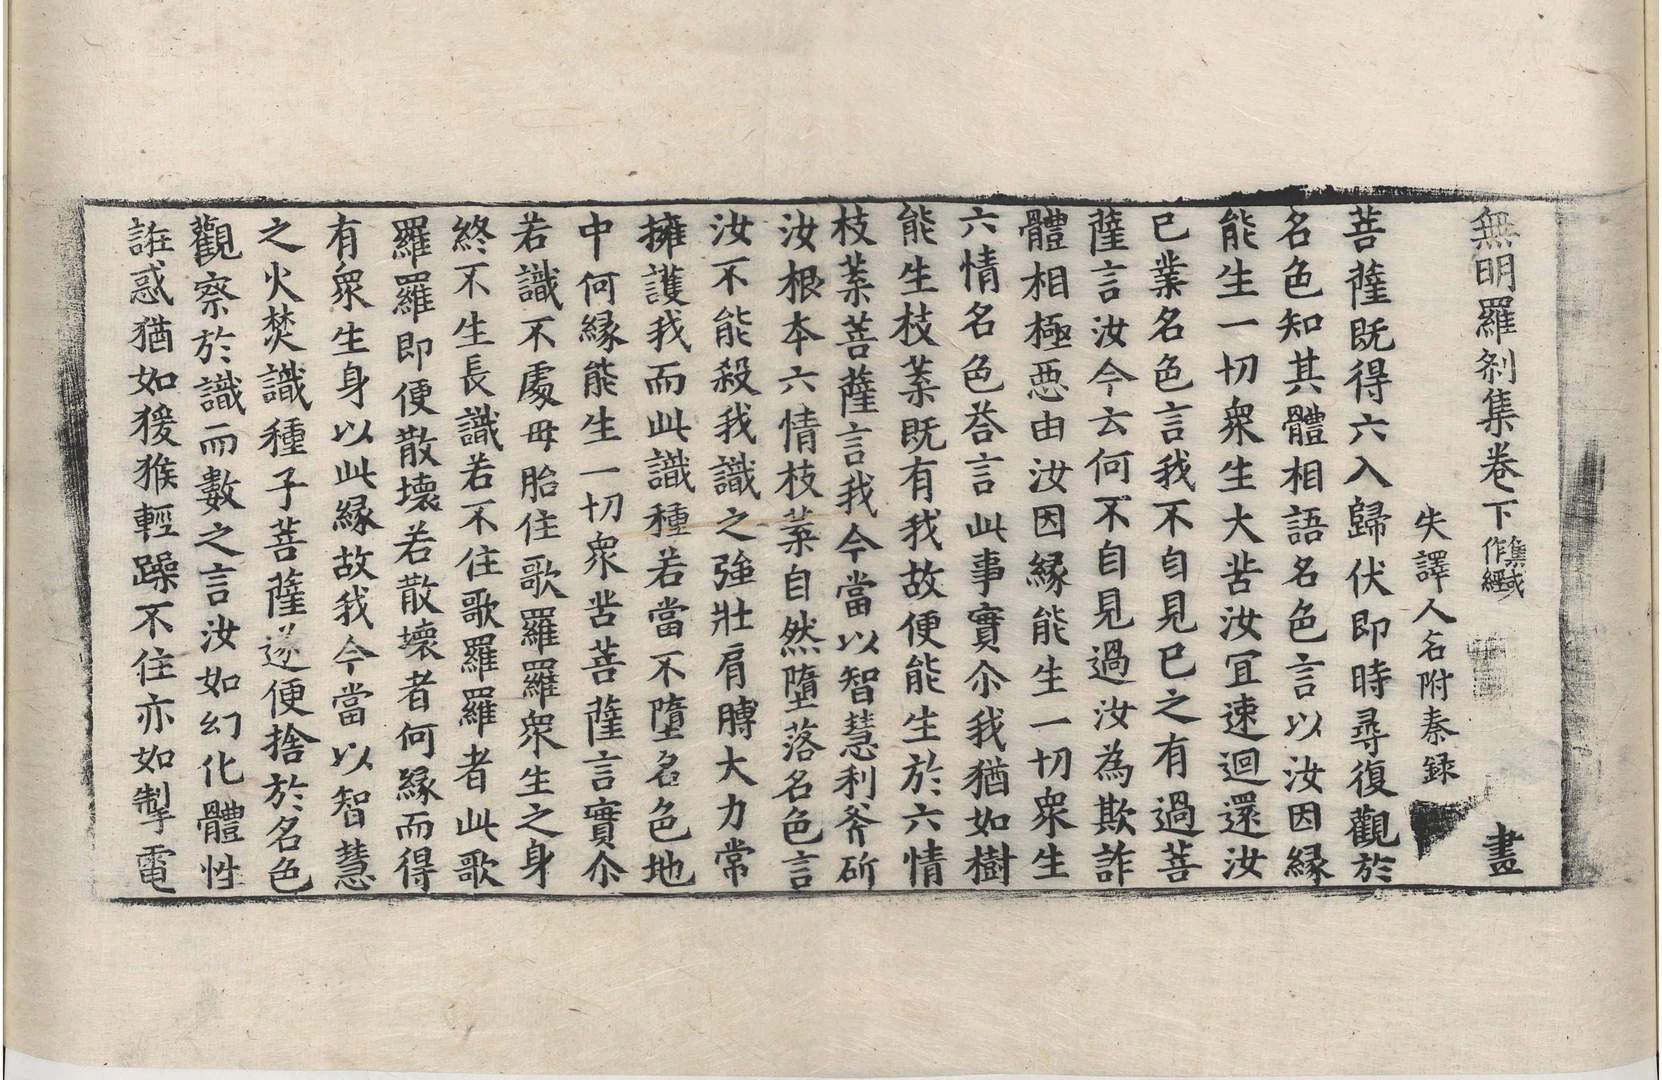 無明羅剎集卷下 集或作經 畫
失譯人名附秦錄
菩薩既得六入歸伏即時尋復觀於
名色知其體相語名色言以汝因緣
能生一切衆生大苦汝冝速迴還汝
已業名色言我不自見已之有過菩
薩言汝今云何不自見過汝為欺詐
體相極惡由汝因緣能生一切衆生
六情名色荅言此事實尒我猶如樹
能生枝葉既有我故便能生於六情
枝葉菩薩言我今當以智慧利斧斫
汝根本六情枝葉自然墮落名色言
汝不能殺我識之強壯肩膊大力常
擁護我而此識種若當不墮名色地
中何緣能生一切衆苦菩薩言實尒
若識不處母胎住歌羅羅衆生之身
終不生長識若不住歌羅羅者此歌
羅羅即便散壞若散壞者何緣而得
有衆生身以此緣故我今當以智慧
之火焚識種子菩薩遂便捨於名色
觀察於識而數之言汝如幻化體性
誑惑猶如猨猴輕躁不住亦如掣電